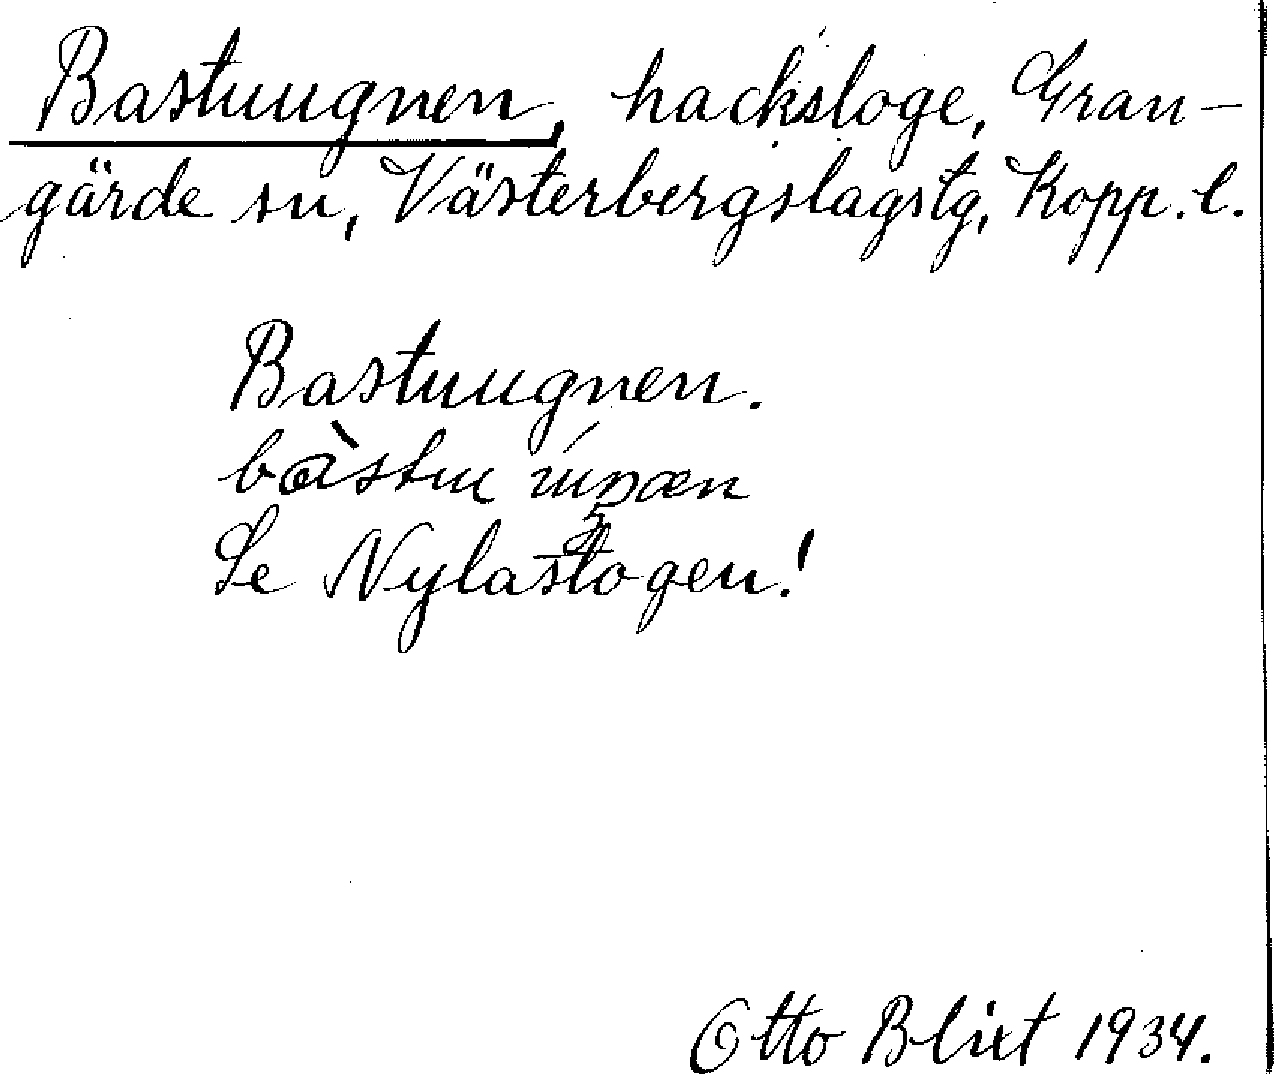 Bastuugnen, hacksloge, Gran-
gärde sn, Västerbergslagstg, Kopp. l.
Bastuugnen.
bàstuu
Se Nylastogen!
Otto Blixt 1934.